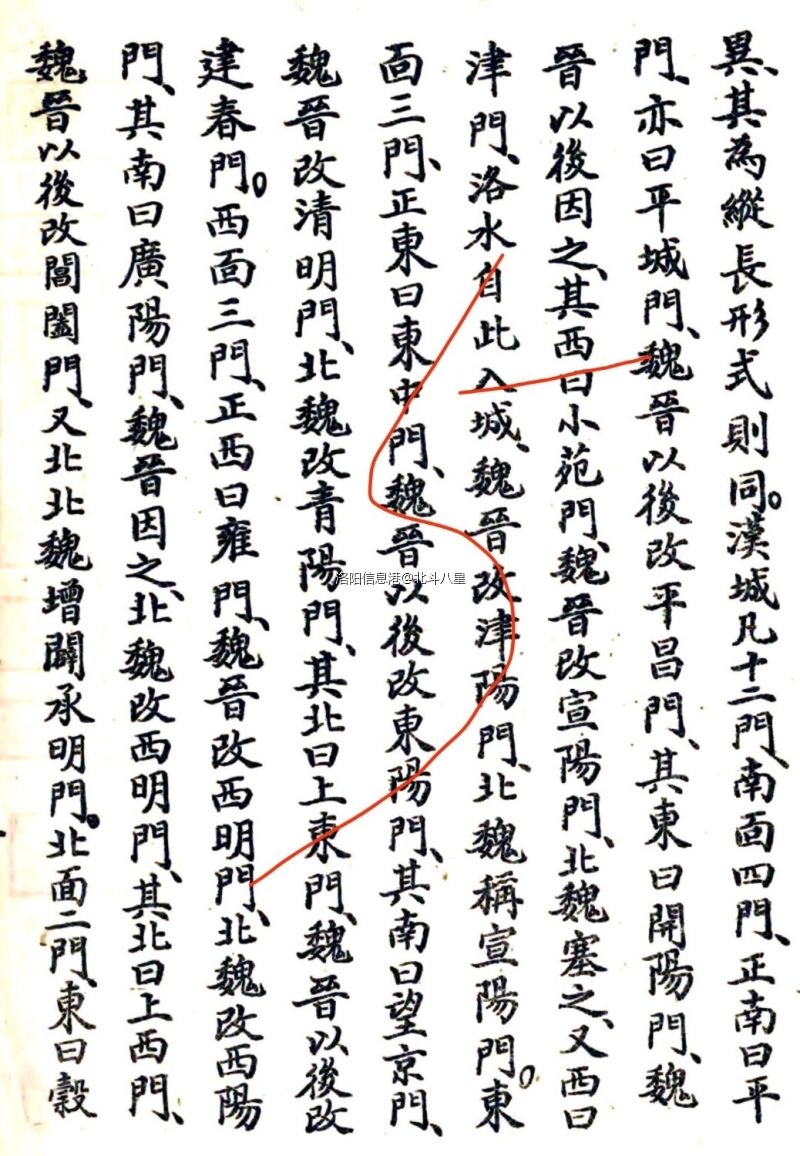 異、其為縱長形式則同。漢城凡十二門、南面四門、正南曰平
門、亦曰平城門、魏晉以後改平昌門、其東曰開陽門、魏
晉以後因之、其西曰小苑門、魏晉改宣陽門、北魏塞之、又西曰
津門、洛水自此入城、魏晉改津陽門、北魏稱宣陽門。東
面三門、正東曰東中門、魏晉以後改東陽門、其南曰望京門、
魏晉改清明門、北魏改青陽門、其北曰上東門、魏晉以後改
建春門。西面三門、正西曰雍門、魏晉改西明門、北魏改西陽
門、其南曰廣陽門、魏晉因之、北魏改西明門、其北曰上西門、
魏晉以後改閶闔門、又北北魏增闢承明門。北面二門、東曰縠
洛阳信息港@北斗八星